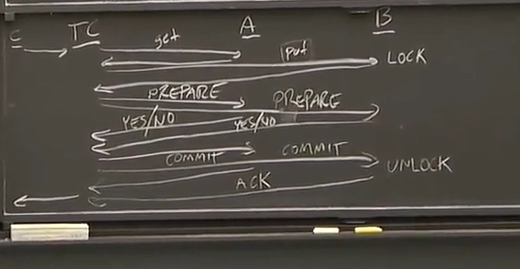 C TC A B
get put LOCK
PREPARE PREPARE
YES/NO YES/NO
COMMIT COMMIT UNLOCK
ACK